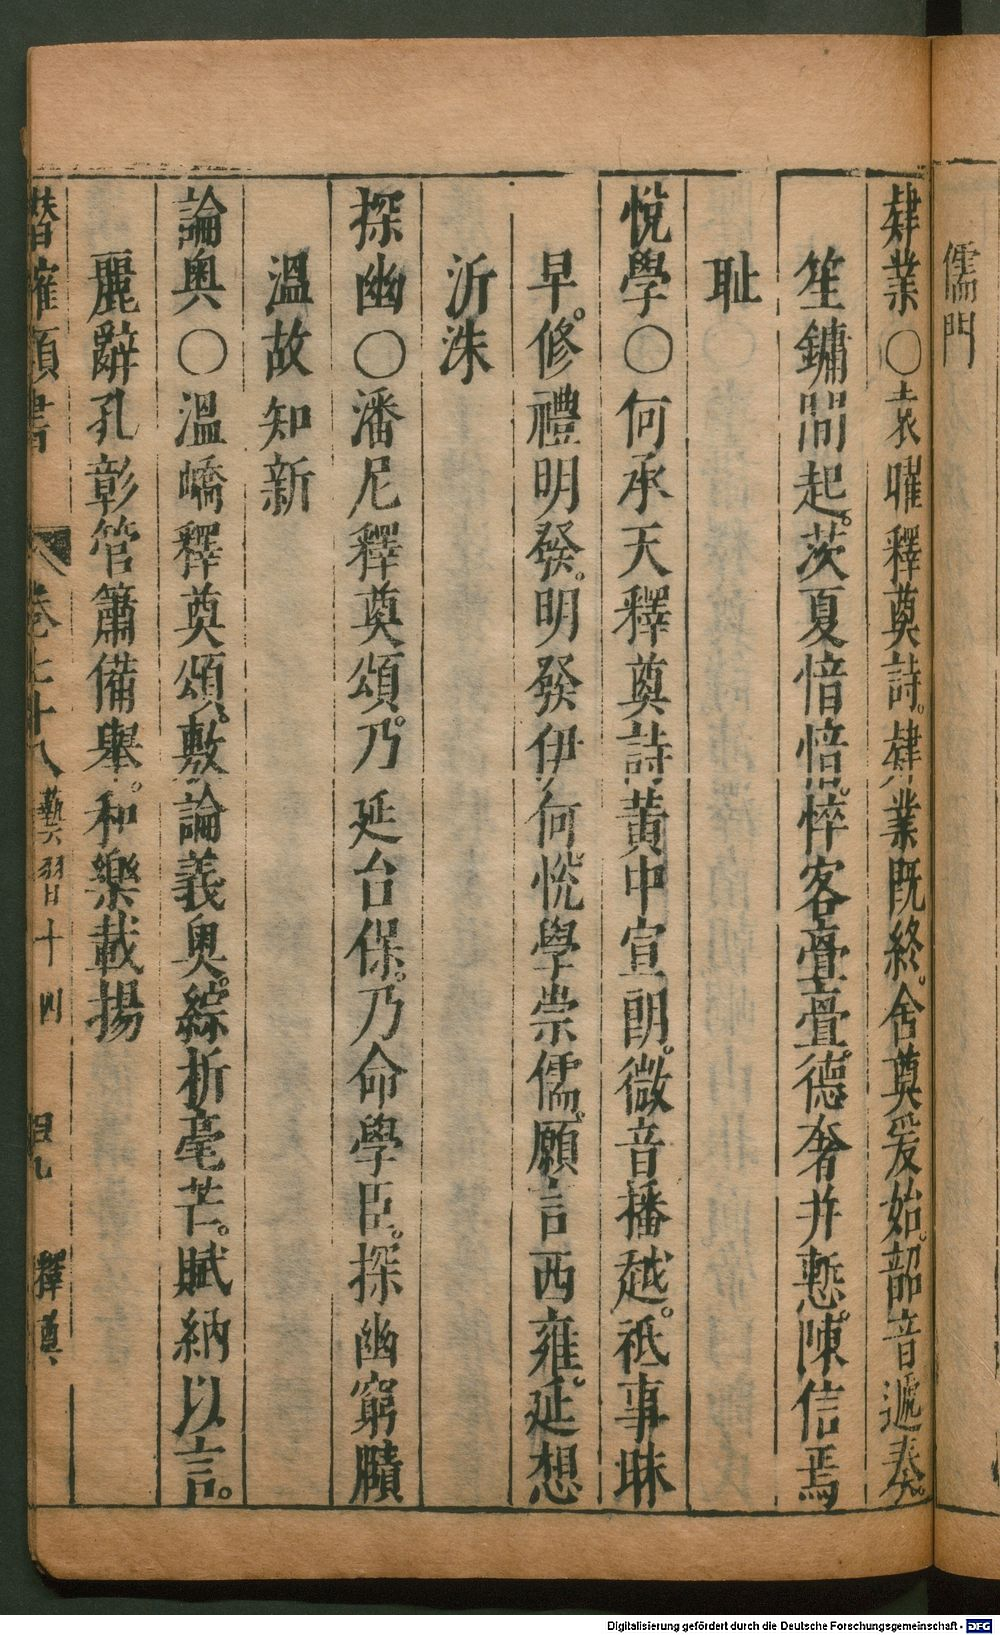 儒門
肄業〇袁曜釋奠詩。肄業既終。舍奠爰始。韶音遞奏。
笙鏞間起。茨夏愔愔。悴客亹亹。德奢弁慙。陳信焉
耻
悅學〇何承天釋奠詩黃中宣朗。微音播越。祗事昧
早。修禮明發。明發伊何。悅學崇儒。願言西雍。延想
沂洙
探幽〇潘尼釋奠頌。乃延台保。乃命學臣。探幽窮賾
溫故知新
論奧〇溫嶠釋奠頌。敷論義奧。綜析毫芒。賦納以言。
麗辭孔彰管簫備舉。和樂載揚
卷七十八 藝習十四 四九 釋奠
Digitalisierung gefördert durch die Deutsche Forschungsgemeinschaft - DFG